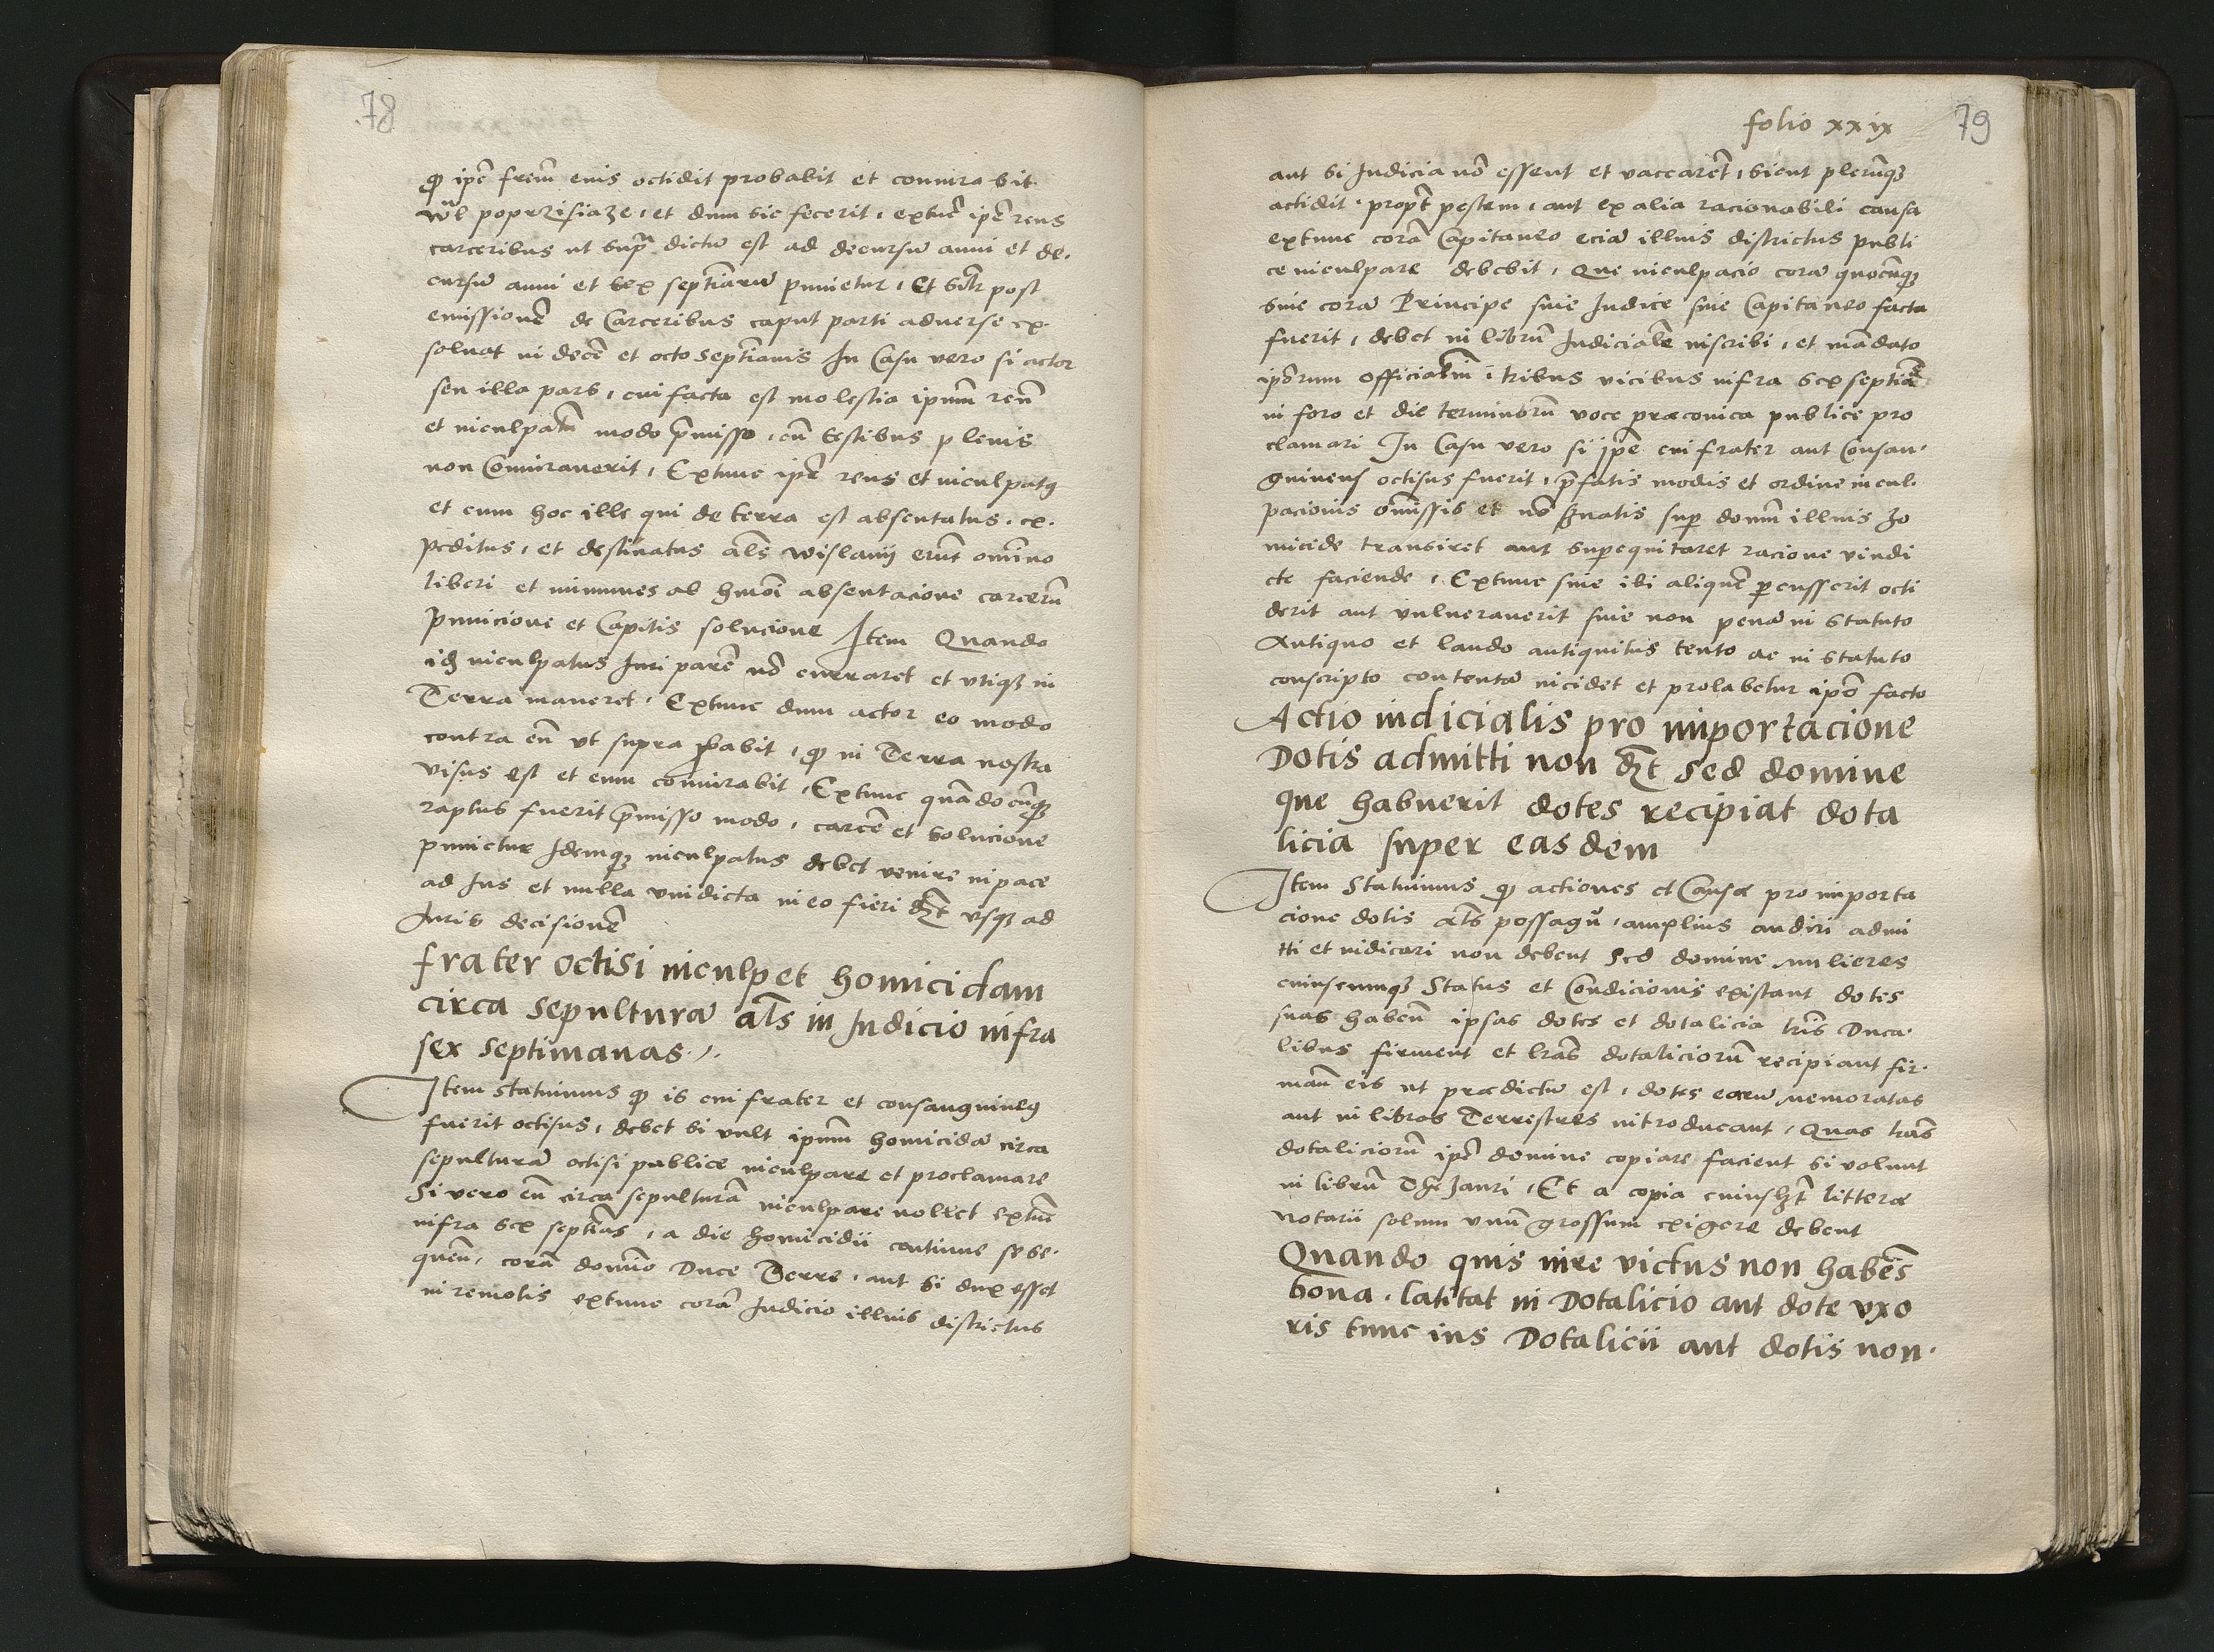 78
ꝙ ipē frem̄ eius occidit probabit et conuirabit
wl poprzisiaze, et dum sic fecerit, extūc ipē reus
carceribus ut supᵃ dictū est ad decursū anni et de-
cursū anni et sex septīarū punietur, Et sīlr post
emissionē de Carceribus caput parti aduerse ex-
soluat in decē et octo septīanis In Casu vero si actor
seu illa pars, cui facta est molestia ipum̄ reū
et inculpatū modo p̄misso, cū testibus plenis
non Conuirauerit, Extunc ipē reus et inculpatꝰ
et cum hoc ille qui de terra est absentatus, ex-
peditus, et destinatus al̄s wislanÿ erūt omīno
liberi et immunes ab hmōi absentacione carcerū
Punicione et Capitis solucione Item Quando
idē inculpatus Iuri parē nō curraret et vtiqꝫ in
Terra maneret, Extunc dum actor eo modo
contra eū vt supra ꝓbabit, ꝙ in Terra nostra
visus est et eum conuirabit, Extunc quādocūqꝫ
raptus fuerit p̄misso modo, carcē et solucione
punietur Idemqꝫ inculpatus debet venire in pace
ad Ius et nulla vindicta in eo fieri dꝫt vsqꝫ ad
Iuris decisionē
frater occisi inculpet homicidam
circa sepulturā al̄s in Iudicio infra
sex septimanas
Item statuimus ꝙ is cui frater et consanguineꝰ
fuerit occisus, debet si vult ipum̄ homicidā circa
sepulturā occisi publice inculpare et proclamare
Si vero eū circa sepulturā inculpare nollet extūc
infra sex septīas, a die homicidii continue se se-
quen̄, corā domīo Duce Terre, aut si dux esset
in remotis extunc corā Iudicio illius districtus
folio xxix
79
aut si Iudicia nō essent et vaccarēt, sicut plerūqꝫ
accidit, propt̄ pestem, aut ex alia racionabili causa
extunc corā Capitaneo eciā illius districtus publi
ce inculpare debebit, Que inculpacio corā quocūqꝫ
siue corā Principe siue Iudice siue Capitaneo facta
fuerit, debet in librū Iudicialē inscribi, et mādato
ipōrum officialiū ī tribus vicibus infra sex septīas
in foro et die terminorū voce præconica publice pro
clamari In Casu vero si ipē cui frater aut Consan-
guineus occisus fuerit, p̄fatis modis et ordine incul-
pacionis omīssis et nō ẜuatis suꝑ domū illius ho
micide transiret aut suꝑequitaret racione vindi
cte faciende, Extunc siue ibi aliquē ꝑcusserit occi
derit aut vulnerauerit siue non penā in statuto
Antiquo et laudo antiquitus tento ac in statuto
conscripto contentā incidet et prolabetur ipō facto
Actio iudicialis pro importacione
Dotis admitti non dꝫt sed domine
que habuerit dotes recipiat dota
licia super easdem
Item Statuimus ꝙ actiones et Causæ pro importa
cione dotis al̄s possagū, amplius audiri admi
tti et iudicari non debent Sed domine mulieres
cuiuscumqꝫ Status et Condicionis existant dotes
suas haben̄ ipsas dotes et dotalicia lr̄is Duca-
libus firment et lrās dotaliciorū recipiant fir-
man̄ eis ut prædictū est, dotes earū memoratas
aut in libros Terrestres introducant, Quas lrās
dotaliciorū ipē domine copiare facient si volunt
in librū Thezauri, Et a copia cuiuslꝫt litteræ
notarii solum vnū grossum exigere debent
Quando quis iure victus non habēs
bona, latitat in Dotalicio aut dote vxo
ris tunc ius Dotalicii aut dotis non-